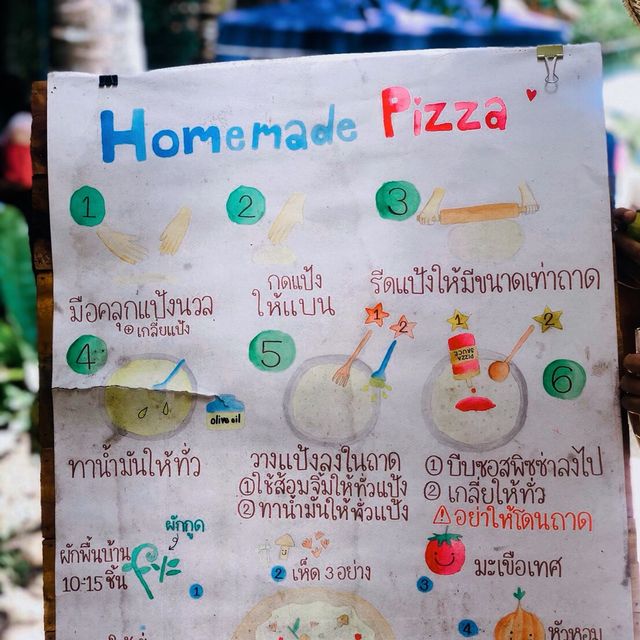 Homemade Pizza
1
2
3
มือคลุกแป้งนวล
+ เกลี่ยแป้ง
กดแป้ง
ให้แบน
รีดแป้งให้มีขนาดเท่าถาด
4
olive oil
5
1 2
1 2
PIZZA SAUCE
6
ทาน้ำมันให้ทั่ว
วางแป้งลงในถาด
① ใช้ส้อมจิ้มให้ทั่วแป้ง
② ทาน้ำมันให้ทั่วแป้ง
① บีบซอสพิซซ่าลงไป
② เกลี่ยให้ทั่ว
⚠ อย่าให้โดนถาด
ผักกูด
ผักพื้นบ้าน
10-15 ชิ้น
1
2 เห็ด 3 อย่าง
3 มะเขือเทศ
4 หัวหอม